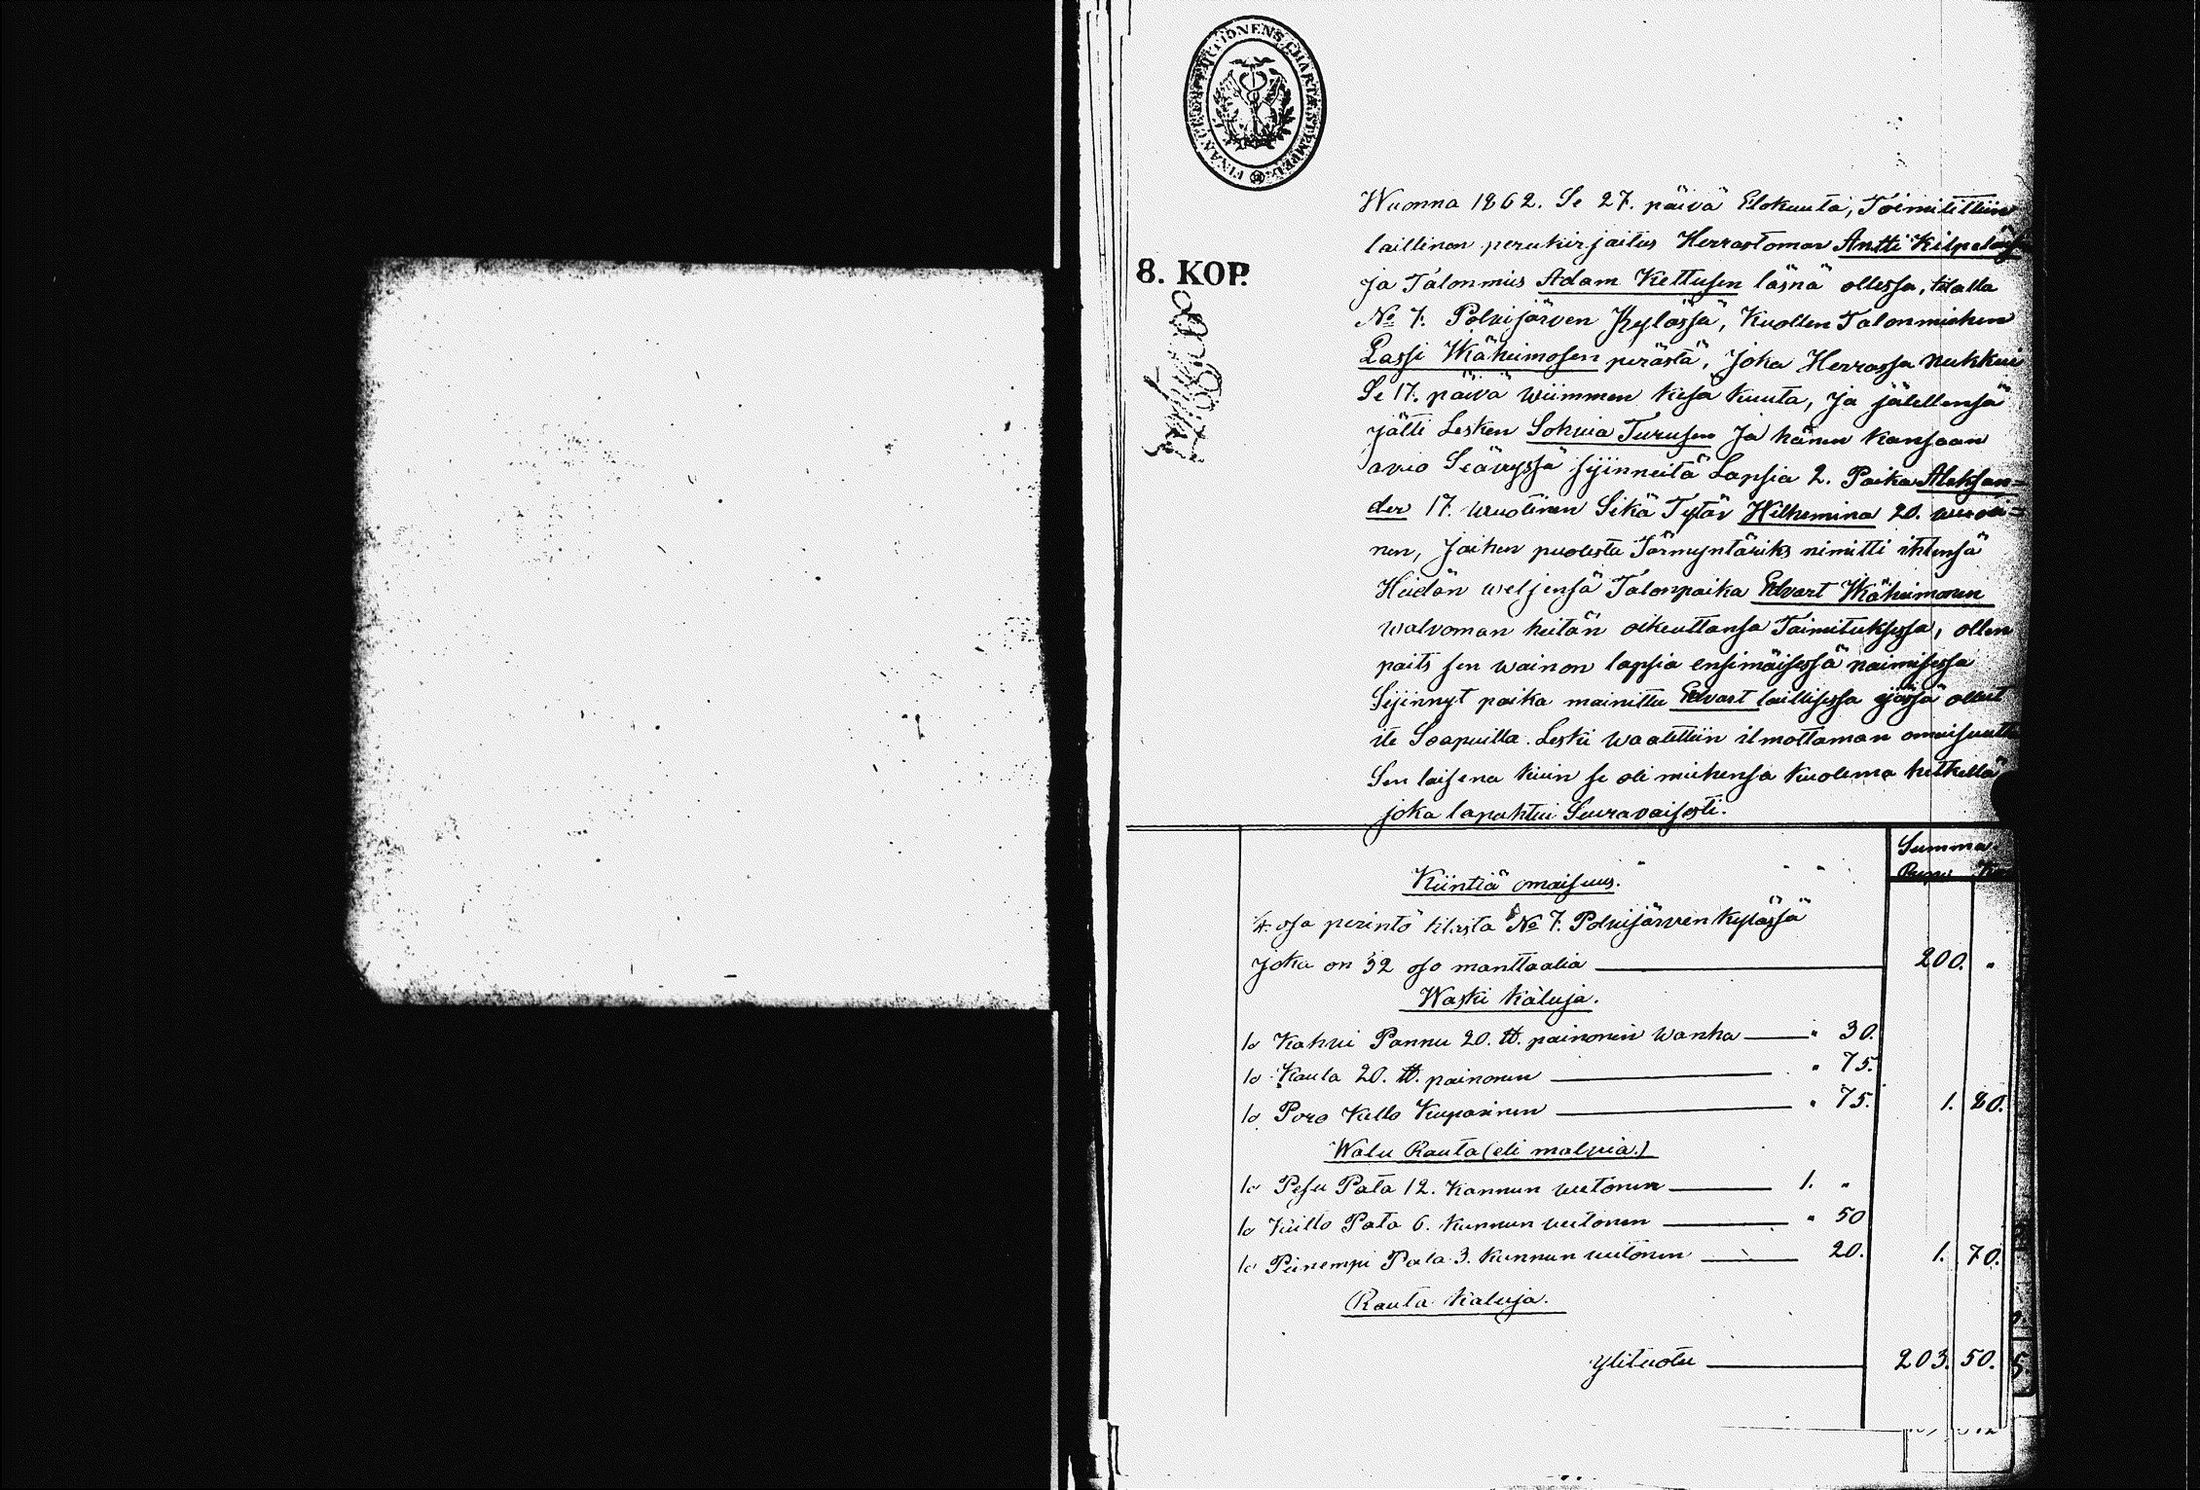 FINANCE EXPEDITIONENS CHARTÆ STEMPEL
8. KOP.
Wuonna 1862. Se 27. päivä Elokuuta, Toimitettiin
laillinen perukirjoitus Herrastoman Antti Kilpeläisen
ja Talonmies Adam Kettusen läsnä ollessa, tilalla
No 7. Polvijärven Kylässä, Kuollen Talonmiehen
Lassi Wäheimosen perästä, Joka Herrassa nukkui
Se 17. päivä wiimmen kesä kuuta, Ja jälellensä
jätti Lesken Sohvia Turusen Ja hänen kansaan
avio Seävyssä syinneitä Lapsia 2. Poika Aleksan=
der 17. wuotinen Sikä Tytär Hilhemina 20. wuoti=
nen, Joihen puolesta Törmyntäriks nimitti ihtensä
Heidän weljensä Talonpoika Edvart Wäheimonen
walvoman heitän oikeuttansa Toimituksessa, ollen
paits sen wainon lapsia ensimäisessä naimisessa
Sijinnyt poika mainittu Edvart laillisessa ijässä ollut
ite Soapuilla. Leski waatettiin ilmottaman omaisuutta
Sen laisena kuin se oli miehensa kuolema hetkellä
joka tapahtui Seuravaisesti.
Summa
Rupl. Kop.
Kiintiä omaisuus.
4. osa perintö tilasta No 7. Polvijärven kylässä
Joka on 32 oso manttaalia 200. "
Waski kaluja.
1o Kahvi Pannu 20. ℔. painonen wanha " 30.
1o Kaula 20. ℔. painonen " 75.
1o Poro Kello Kuparinen " 75. 1. 80.
Walu Rauta (eli malvia.)
1o Pesu Pata 12. Kannun wetonen 1. "
1o Keitto Pata 6. Kannun vetonen " 50
1o Pienempi Pata 3. Kannun vetonen 20. 1. 70.
Rauta kaluja.
ylituotu 203. 50.